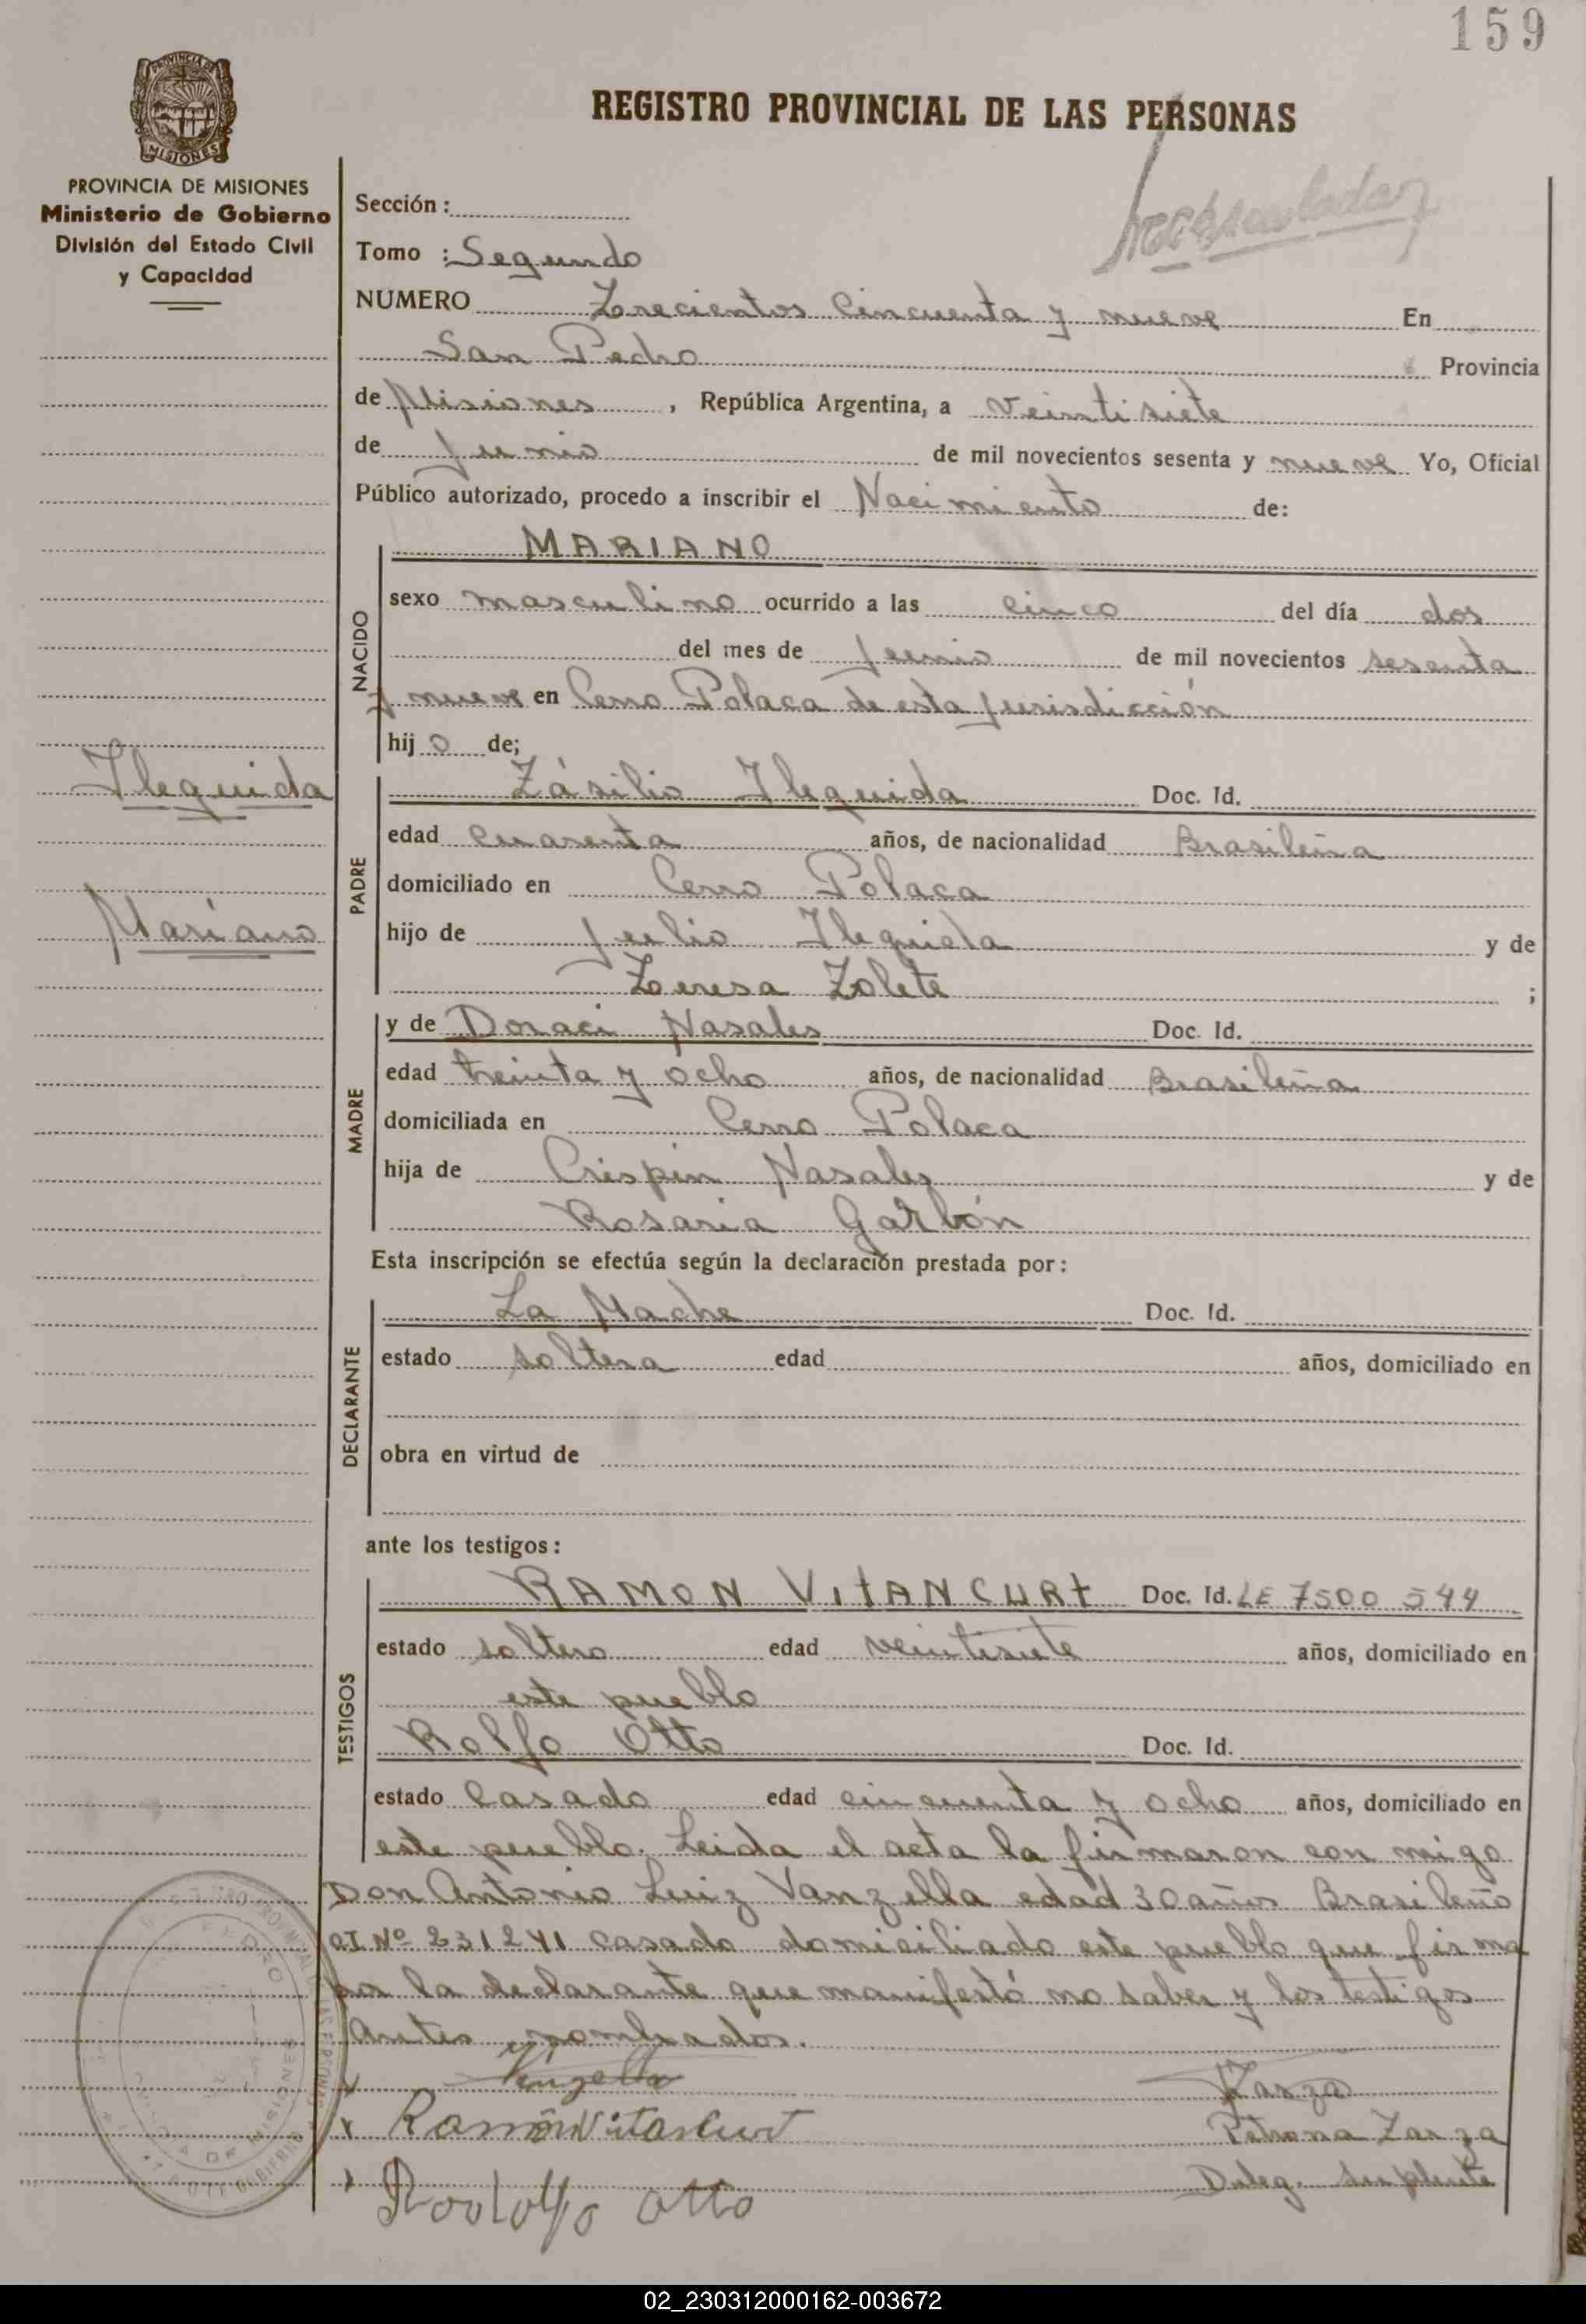 159
REGISTRO PROVINCIAL DE LAS PERSONAS
PROVINCIA DE MISIONES
Ministerio de Gobierno
División del Estado Civil
y Capacidad
Sección :
Tomo : Segundo
NUMERO Trecientos Cincuenta y nueve En
San Pedro Provincia
de Misiones , República Argentina, a veintisiete
de Junio de mil novecientos sesenta y nueve Yo, Oficial
Público autorizado, procedo a inscribir el Nacimiento de:
MARIANO
NACIDO
sexo masculino ocurrido a las cinco del día dos
del mes de Junio de mil novecientos sesenta
y nueve en Cerro Polaca de esta jurisdicción
hij o de;
Ileguida
Mariano
PADRE
Zásilio Ileguida Doc. Id.
edad cuarenta años, de nacionalidad Brasileña
domiciliado en Cerro Polaca
hijo de Julio Ileguida y de
Teresa Zolete ;
MADRE
y de Doraci Nasales Doc. Id.
edad treinta y ocho años, de nacionalidad Brasileña
domiciliada en Cerro Polaca
hija de Crispin Nasales y de
Rosaria Garbón
Esta inscripción se efectúa según la declaración prestada por :
DECLARANTE
La Madre Doc. Id.
estado soltera edad años, domiciliado en
obra en virtud de
ante los testigos :
TESTIGOS
RAMON VITANCURT Doc. Id. LE 7500 544
estado soltero edad veintisiete años, domiciliado en
este pueblo
Rolfo Otto Doc. Id.
estado Casado edad cincuenta y ocho años, domiciliado en
este pueblo. Leida el acta la firmaron con migo
Don Antonio Luiz Vanzella edad 30 años Brasileño
CI Nº 231241 casado domiciliado este pueblo que firma
por la declarante que manifestó no saber y los testigos
antes nombrados.
Vanzella
Zarza
Ramón Vitancurt
Petrona Zarza
Deleg. Suplente
Rodolfo Otto
02_230312000162-003672